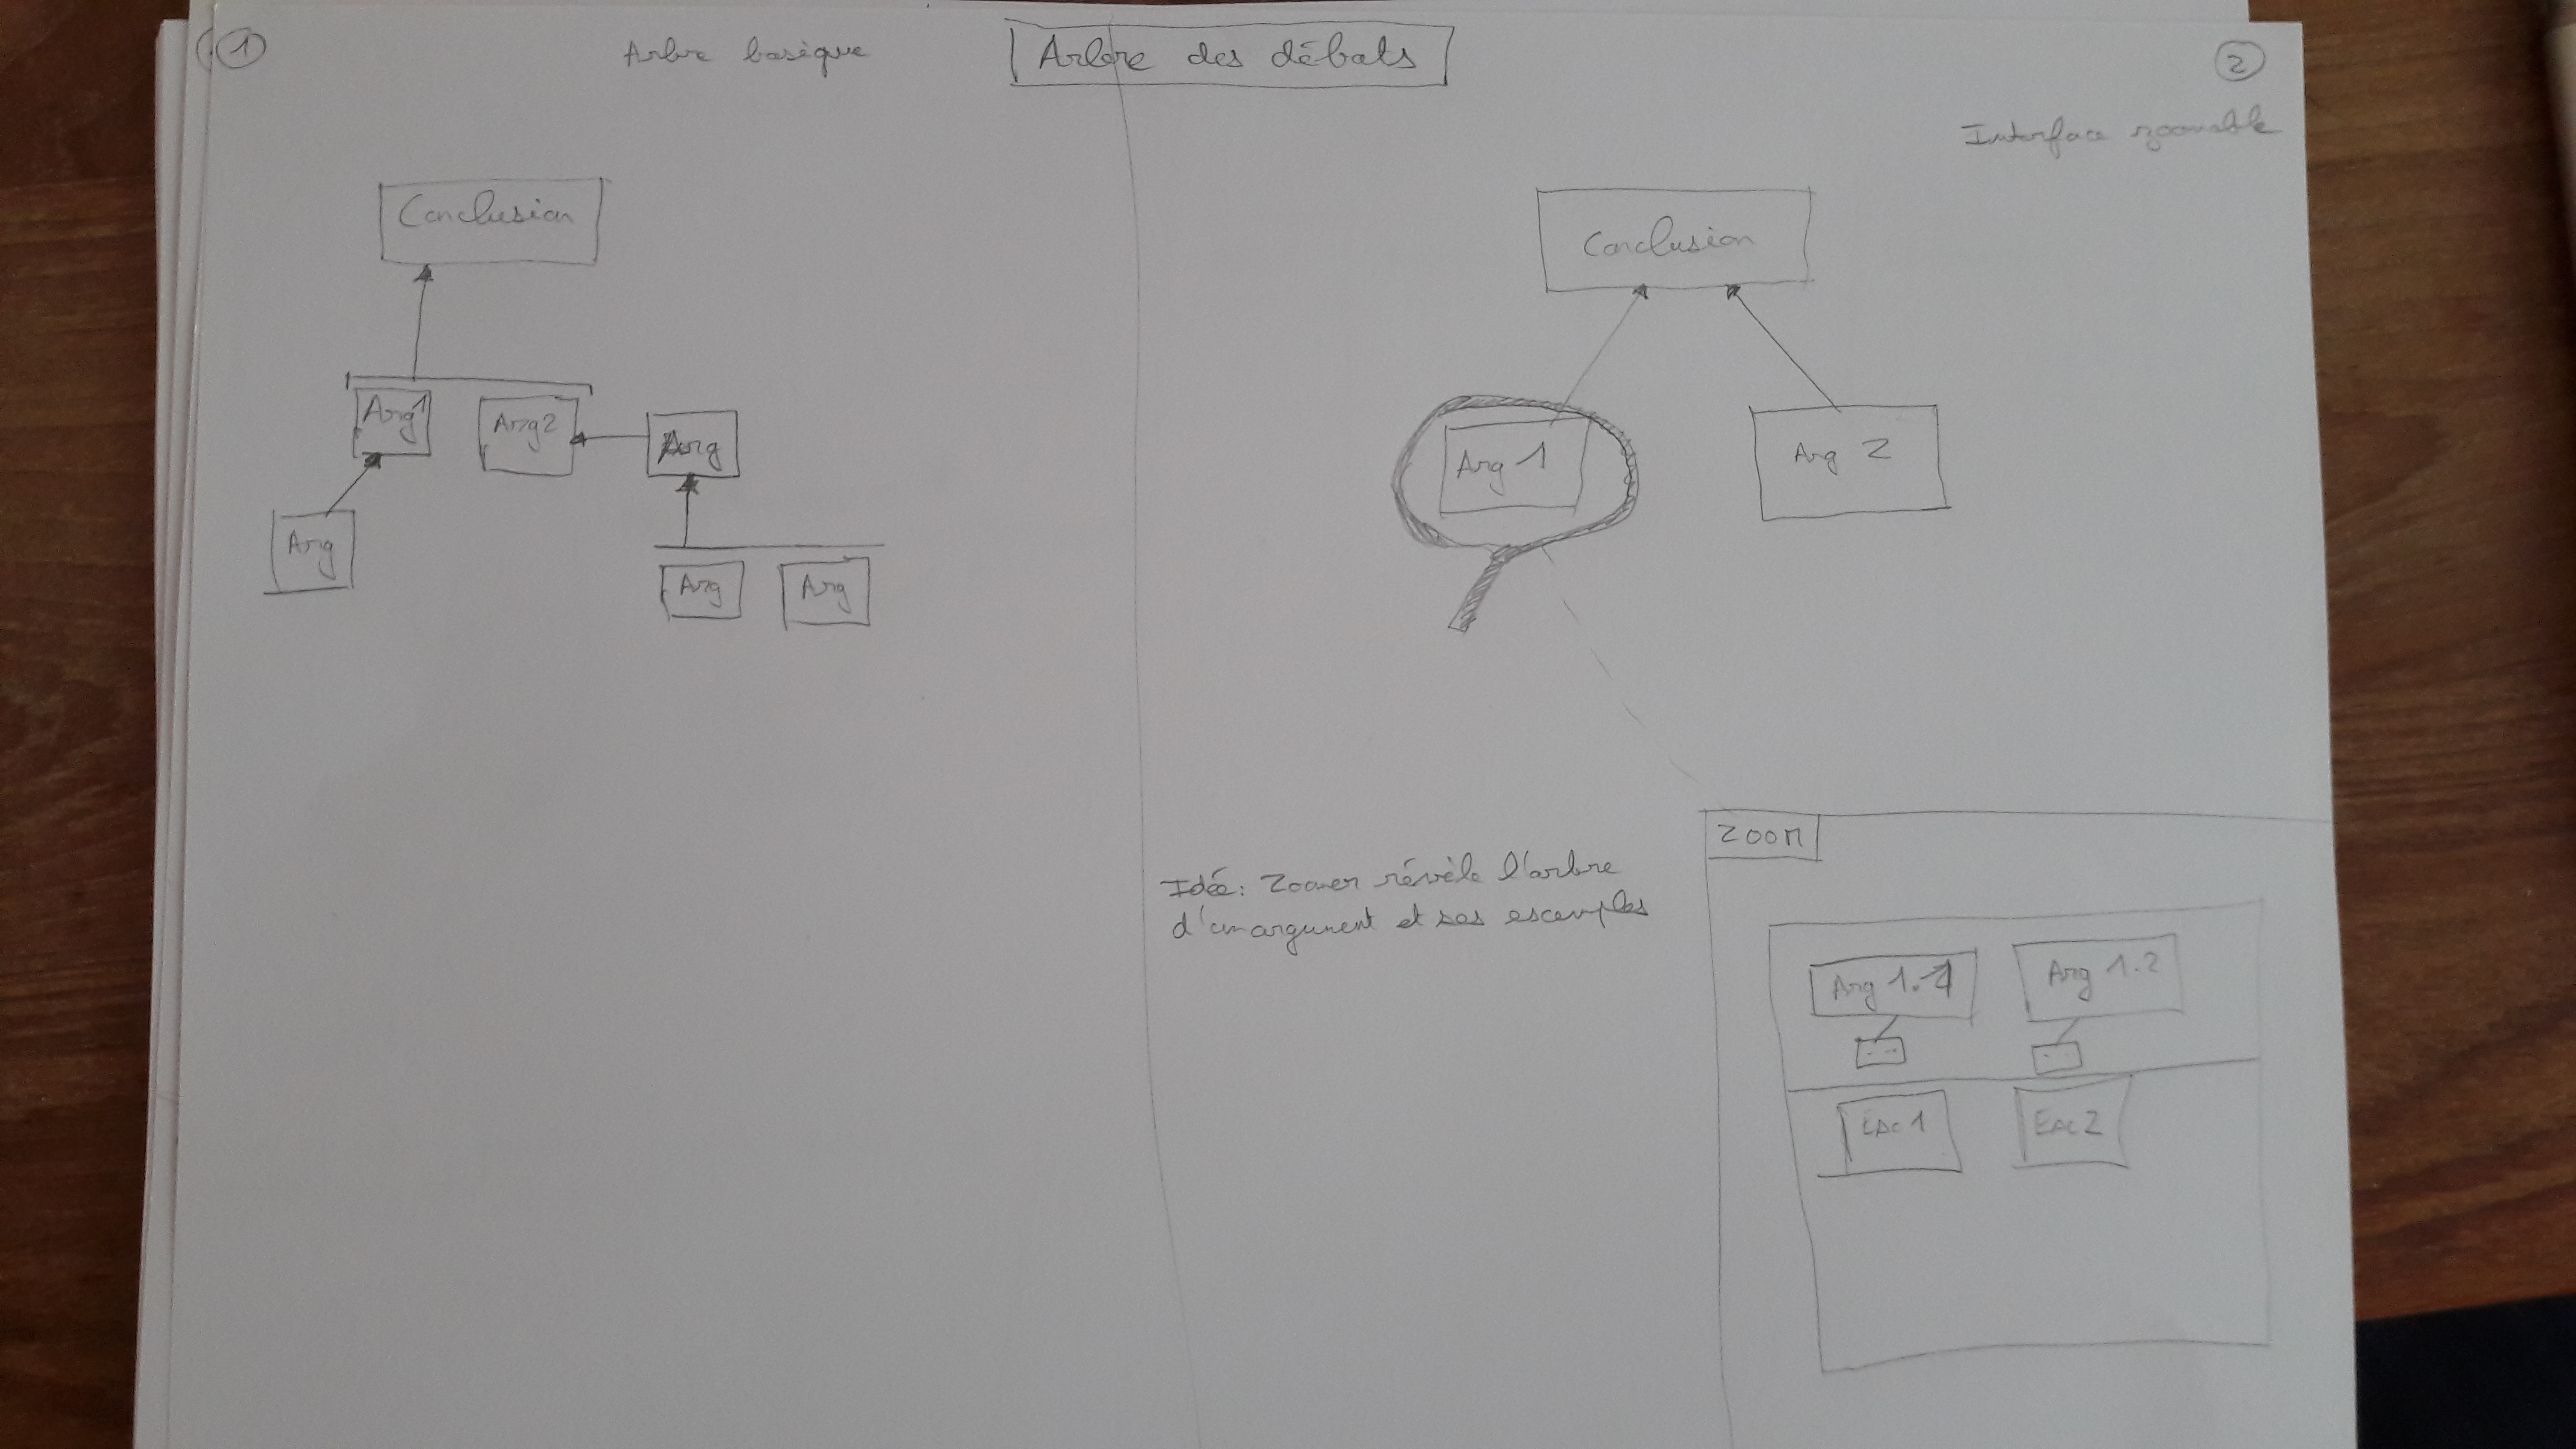 Arbre des débats
1
Arbre basique
Conclusion
Arg1
Arg2
Arg
Arg
Arg
Arg
2
Interface zoomable
Conclusion
Arg 1
Arg 2
Idée: Zoomer révèle l'arbre
d'un argument et ses exemples
ZOOM
Arg 1.1
Arg 1.2
Exe 1
Exe 2